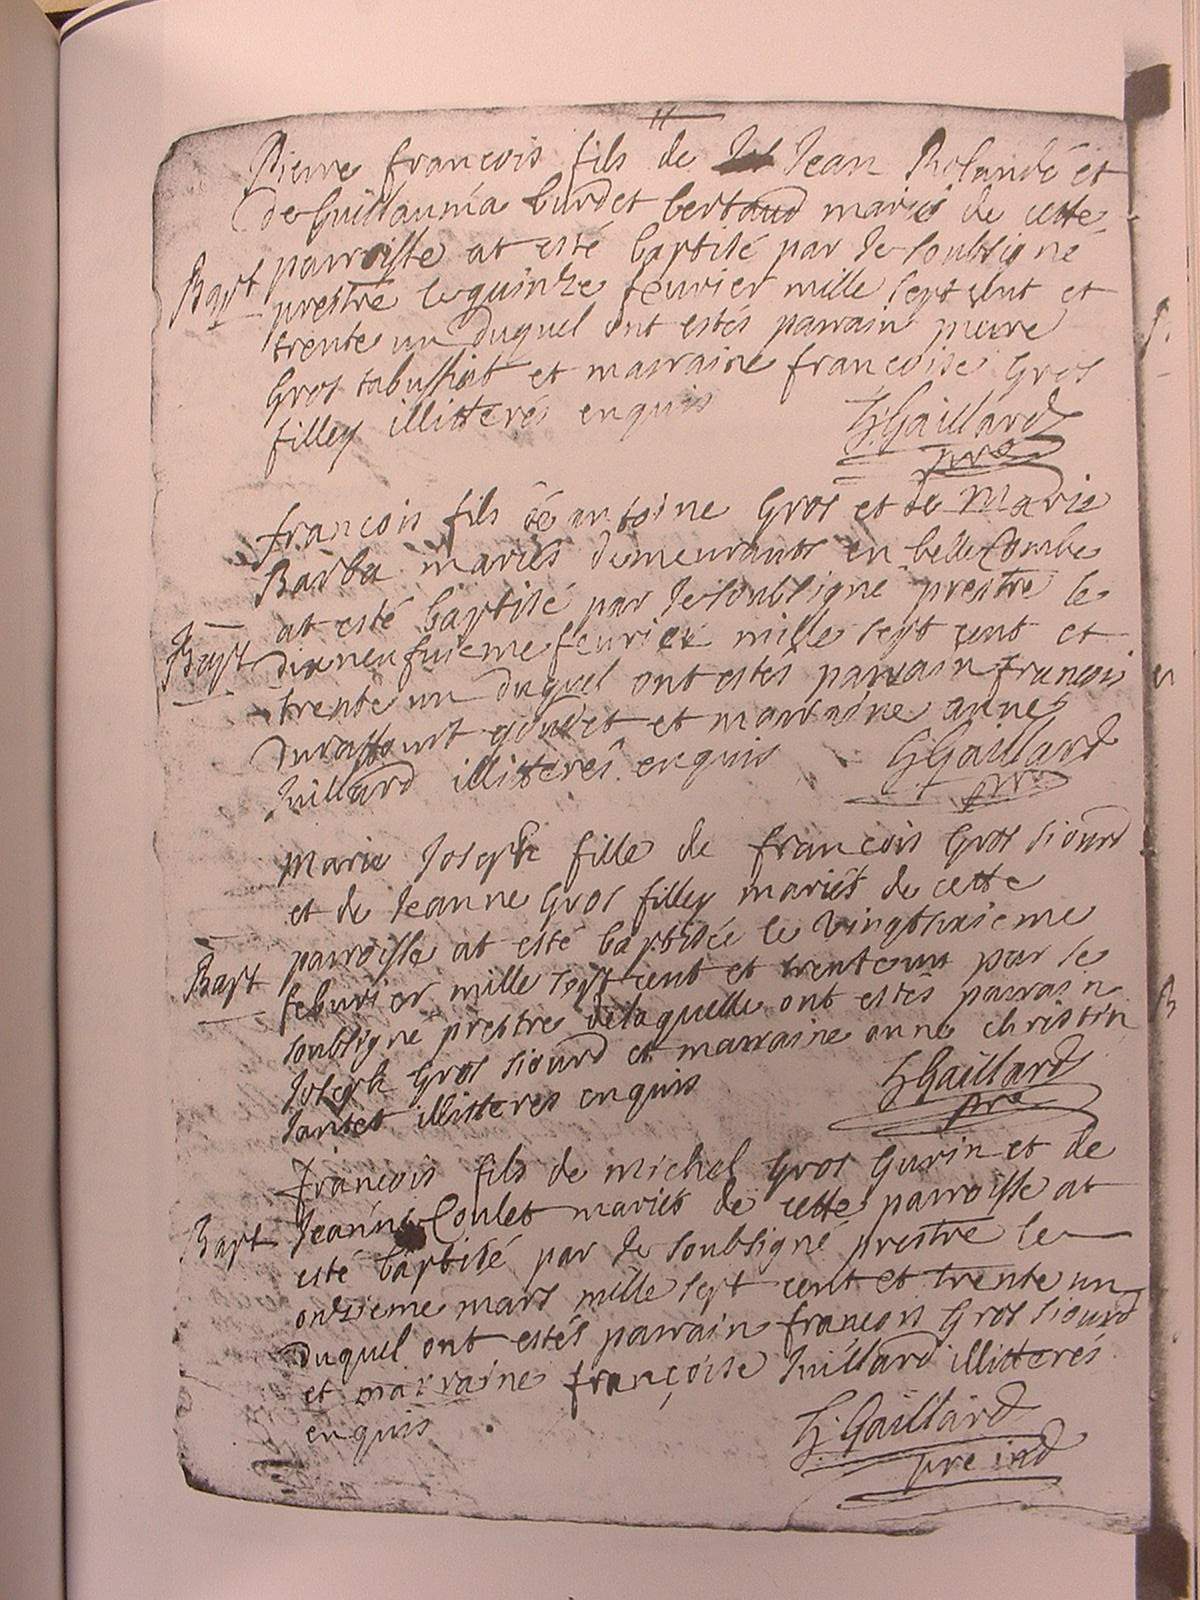 11
Pierre francois fils de Jean Rolande et
de Guillauma burdet bertaud mariés de cette
Bapt
parroisse at esté baptisé par Je soubsigné
prestre le quinze feuvrier mille sept cent et
trente un duquel ont estés parrain pierre
Gros et marraine francoise Gros
filley illitterés enquis
G: Gaillard
pre
francois fils de antoine Gros et de Marie
Barba mariés demeurants en belle Combe
Bapt
at esté baptisé par Je soubsigné prestre le
dixneufuieme feuvrier mille sept cent et
trente un duquel ont estés parrain francois
et marraine anne
Juillard illitterés enquis
G Gaillard
pre
Marie Joseph fille de francois Gros siourd
et de Jeanne Gros filley mariés de cette
Bapt
parroisse at esté baptisée le vingtsixieme
feburier mille sept cent et trente un par Je
soubsigné prestre de laquelle ont estés parrain
Joseph Gros siourd et marraine anne christin
illitteres enquis
G Gaillard
pre
francois fils de michel Gros Gurin et de
Bapt
Jeanne Coulet mariés de cette parroisse at
esté baptisé par Je soubsigné prestre le
onzieme mars mille sept cent et trente un
duquel ont estés parrain francois Gros siourd
et marraine françoise Juillard illitterés
enquis
G: Gaillard
pre ind